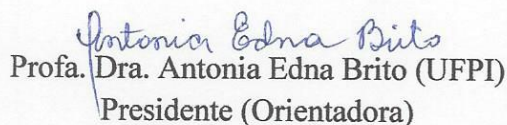 Antonia Edna Brito
Profa. Dra. Antonia Edna Brito (UFPI)
Presidente (Orientadora)